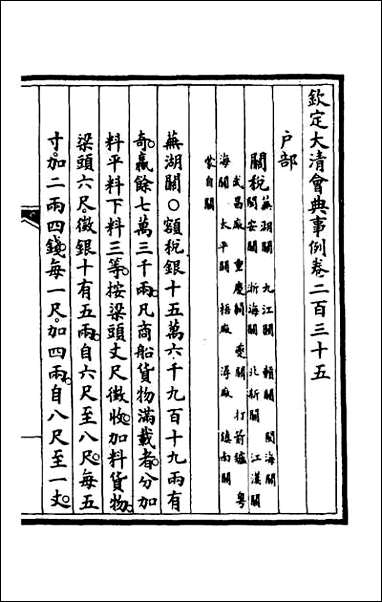 欽定大清會典事例卷二百三十五
戶部
關稅蕪湖關 九江關 贛關 閩海關
閩安關 浙海關 北新關 江漢關
武昌廠 重慶關 夔關 打箭鑪 粵
海關 太平關 梧廠 潯廠 鎮南關
蒙自關
蕪湖關○額稅銀十五萬六千九百十九兩有
奇贏餘七萬三千兩凡商船貨物滿載者分加
料平料下料三等按梁頭丈尺徵收加料貨物
梁頭六尺徵銀十有五兩自六尺至八尺每五
寸加二兩四錢每一尺加四兩自八尺至一丈